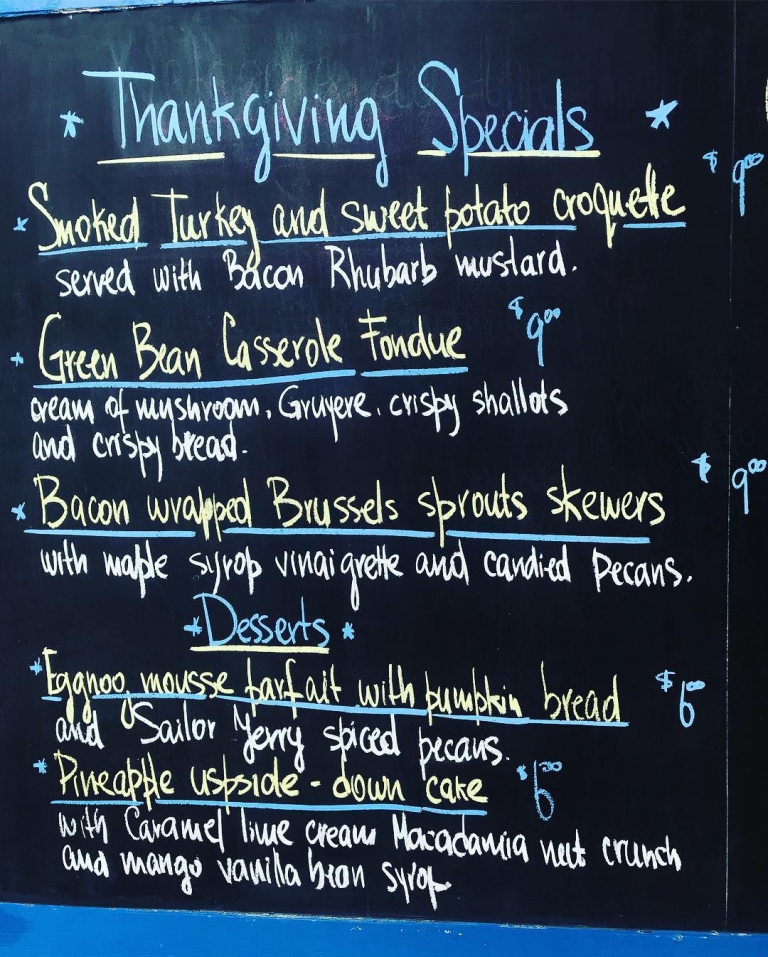 * Thankgiving Specials *
* Smoked Turkey and sweet potato croquette $9.00
served with Bacon Rhubarb mustard.
* Green Bean Casserole Fondue $9.00
cream of myshroom, Gruyere, crispy shallots
and crispy bread.
* Bacon wrapped Brussels sprouts skewers $9.00
with maple syrop vinaigrette and candied Pecans.
* Desserts *
* Eggnog mousse parfait with pumpkin bread $6.00
and Sailor Jerry spiced pecans.
* Pineapple uspside-down cake $6.00
with Caramel lime cream Macadamia nut crunch
and mango vanilla bean syrop